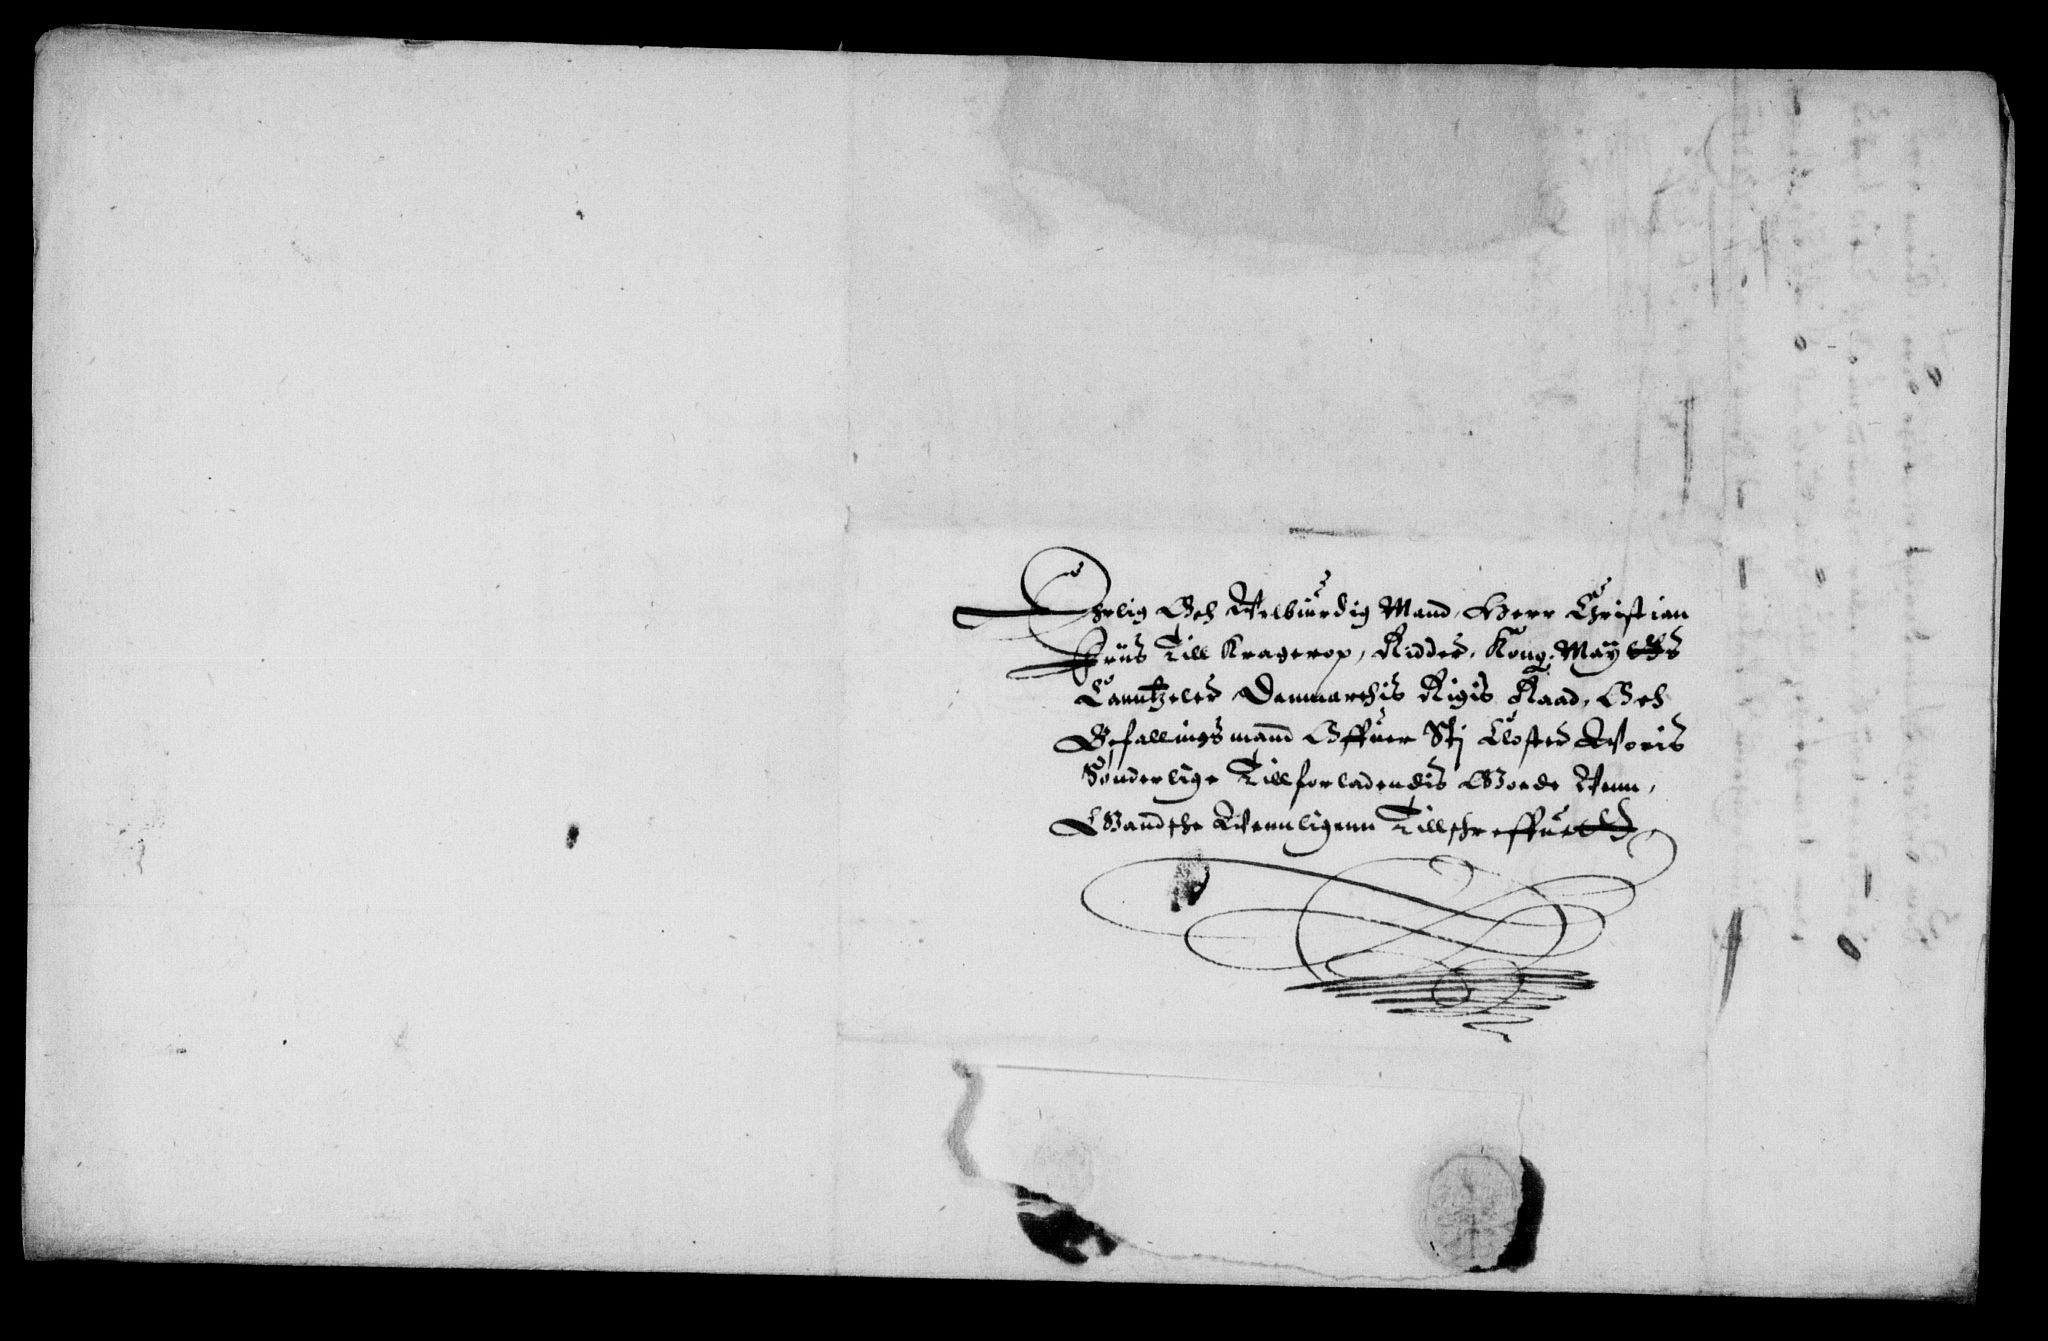 Ehrlig Och Velbiurdig Mand, Herr Christian
Friis Till Kragerop, Ridder, Kong: May tts
Canntzeler Danmarchis Rigis Raad, Och
Befallingsmand Offuer Stj Closter Woris
Sønderlige Tillforladendis Goede Venn,
Gandsche Wennligenn Tillschreffuett